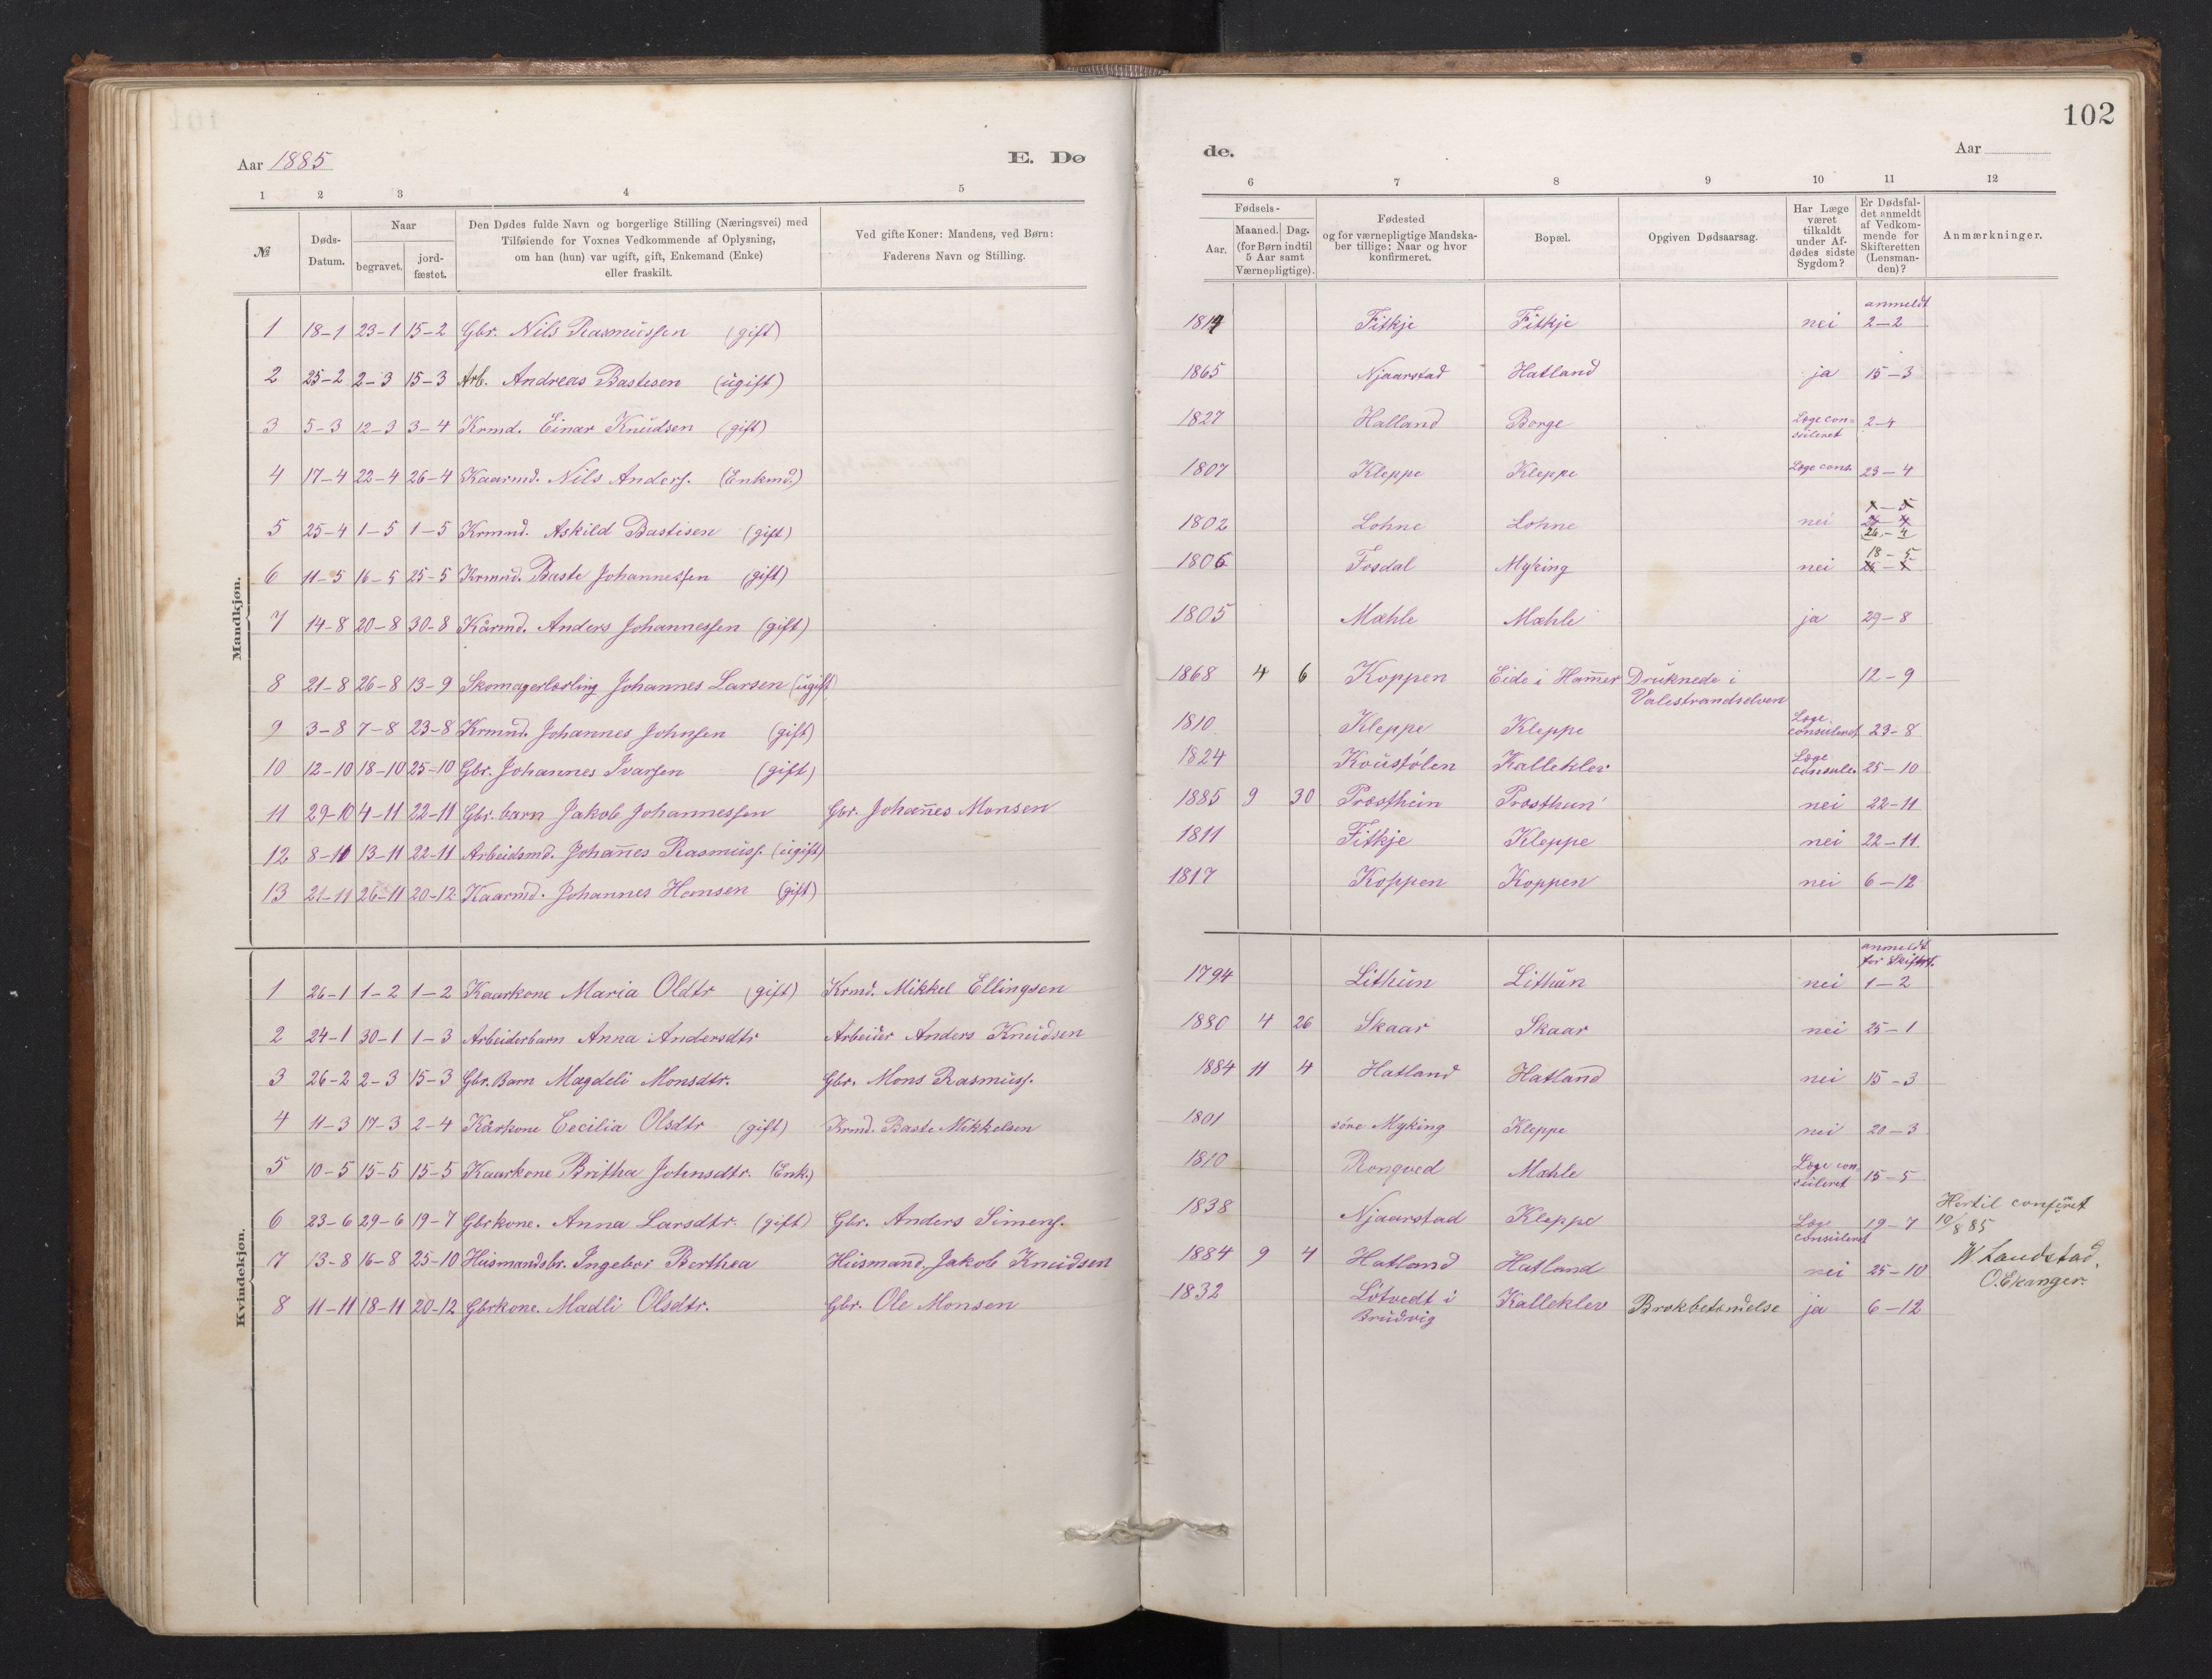 102
Aar 1885
E. Dø
de.
Aar
1 2 3 4 5
6 7 8 9 10 11 12
№
Døds-Datum.
Naar
begravet.
jord-fæstet.
Den Dødes fulde Navn og borgerlige Stilling (Næringsvei) med
Tilføiende for Voxnes Vedkommende af Oplysning,
om han (hun) var ugift, gift, Enkemand (Enke)
eller fraskilt.
Ved gifte Koner: Mandens, ved Børn:
Faderens Navn og Stilling.
Fødsels-
Aar.
Maaned. Dag.
(for Børn indtil
5 Aar samt
Værnepligtige).
Fødested
og for værnepligtige Mandska-
ber tillige: Naar og hvor
konfirmeret.
Bopæl.
Opgiven Dødsaarsag.
Har Læge
været
tilkaldt
under Af-
dødes sidste
Sygdom?
Er Dødsfal-
det anmeldt
af Vedkom-
mende for
Skifteretten
(Lensman-
den)?
Anmærkninger.
Mandkjøn.
1 18-1 23-1 15-2 Gbr. Nils Rasmussen (gift) 1814 Fitkje Fitkje nei anmeldt 2-2
2 25-2 2-3 15-3 Arb. Andreas Bastesen (ugift) 1865 Njaarstad Hatland ja 15-3
3 5-3 12-3 3-4 Krmd. Einar Knudsen (gift) 1827 Halland Borge Læge consuleret 2-4
4 17-4 22-4 26-4 Kaarmd. Nils Anders. (Enkmd.) 1807 Kleppe Kleppe Læge cons. 23-4
5 25-4 1-5 1-5 Krmnd. Askild Bastisen (gift) 1802 Lohne Lohne nei 26-4
6 11-5 16-5 25-5 Krmnd. Baste Johannessen (gift) 1806 Fosdal Myking nei 18-5
7 14-8 20-8 30-8 Kårmd. Anders Johannessen (gift) 1805 Mæhle Mæhle ja 29-8
8 21-8 26-8 13-9 Skomagerlærling Johannes Larsen (ugift) 1868 4 6 Koppen Eide i Ham̄er Druknede i Valestrandselven 12-9
9 3-8 7-8 23-8 Krmnd. Johannes Johnsen (gift) 1810 Kleppe Kleppe Læge consuleret 23-8
10 12-10 18-10 25-10 Gbr. Johannes Ivarsen (gift) 1824 Koustølen Kalleklev Læge consule. 25-10
11 29-10 4-11 22-11 Gbr. barn Jakob Johannessen Gbr. Johan̄es Monsen 1885 9 30 Præsthun Præsthun nei 22-11
12 8-11 13-11 22-11 Arbeidsmd. Johan̄es Rasmuss. (ugift) 1811 Fitkje Kleppe nei 22-11
13 21-11 26-11 20-12 Kaarmd. Johannes Hansen (gift) 1817 Koppen Koppen nei 6-12
Kvindekjøn.
1 26-1 1-2 1-2 Kaarkone Maria Oldtr (gift) Krmd. Mikkel Ellingsen 1794 Lithun Lithun nei anmeldt for Skiftert. 1-2
2 24-1 30-1 1-3 Arbeiderbarn Anna Andersdtr Arbeider Anders Knudsen 1880 4 26 Skaar Skaar nei 25-1
3 26-2 2-3 15-3 Gbr. Barn Magdeli Monsdtr. Gbr. Mons Rasmuss. 1884 11 4 Hatland Hatland nei 15-3
4 11-3 17-3 2-4 Kårkone Cecilia Olsdtr (gift) Krmd. Baste Mikkelsen 1801 søre Myking Kleppe nei 20-3
5 10-5 15-5 15-5 Kaarkone Britha Johnsdtr. (Enk.) 1810 Rongved Mæhle Læge consuleret 15-5
6 23-6 29-6 19-7 Gbrkone. Anna Larsdtr. (gift) Gbr. Anders Simens. 1838 Njaarstad Kleppe Læge consuleret 19-7 Hertil conferet 10/8 85
7 13-8 16-8 25-10 Husmandsbr. Ingebor Berthea Husmand. Jakob Knudsen 1884 9 4 Hatland Hatland nei 25-10 W Landstad.
O. Ekanger.
8 11-11 18-11 20-12 Gbrkone. Madli Olsdtr. Gbr. Ole Monsen 1832 Lotvedt i Brudvig Kalleklev Brokbetændelse ja 6-12